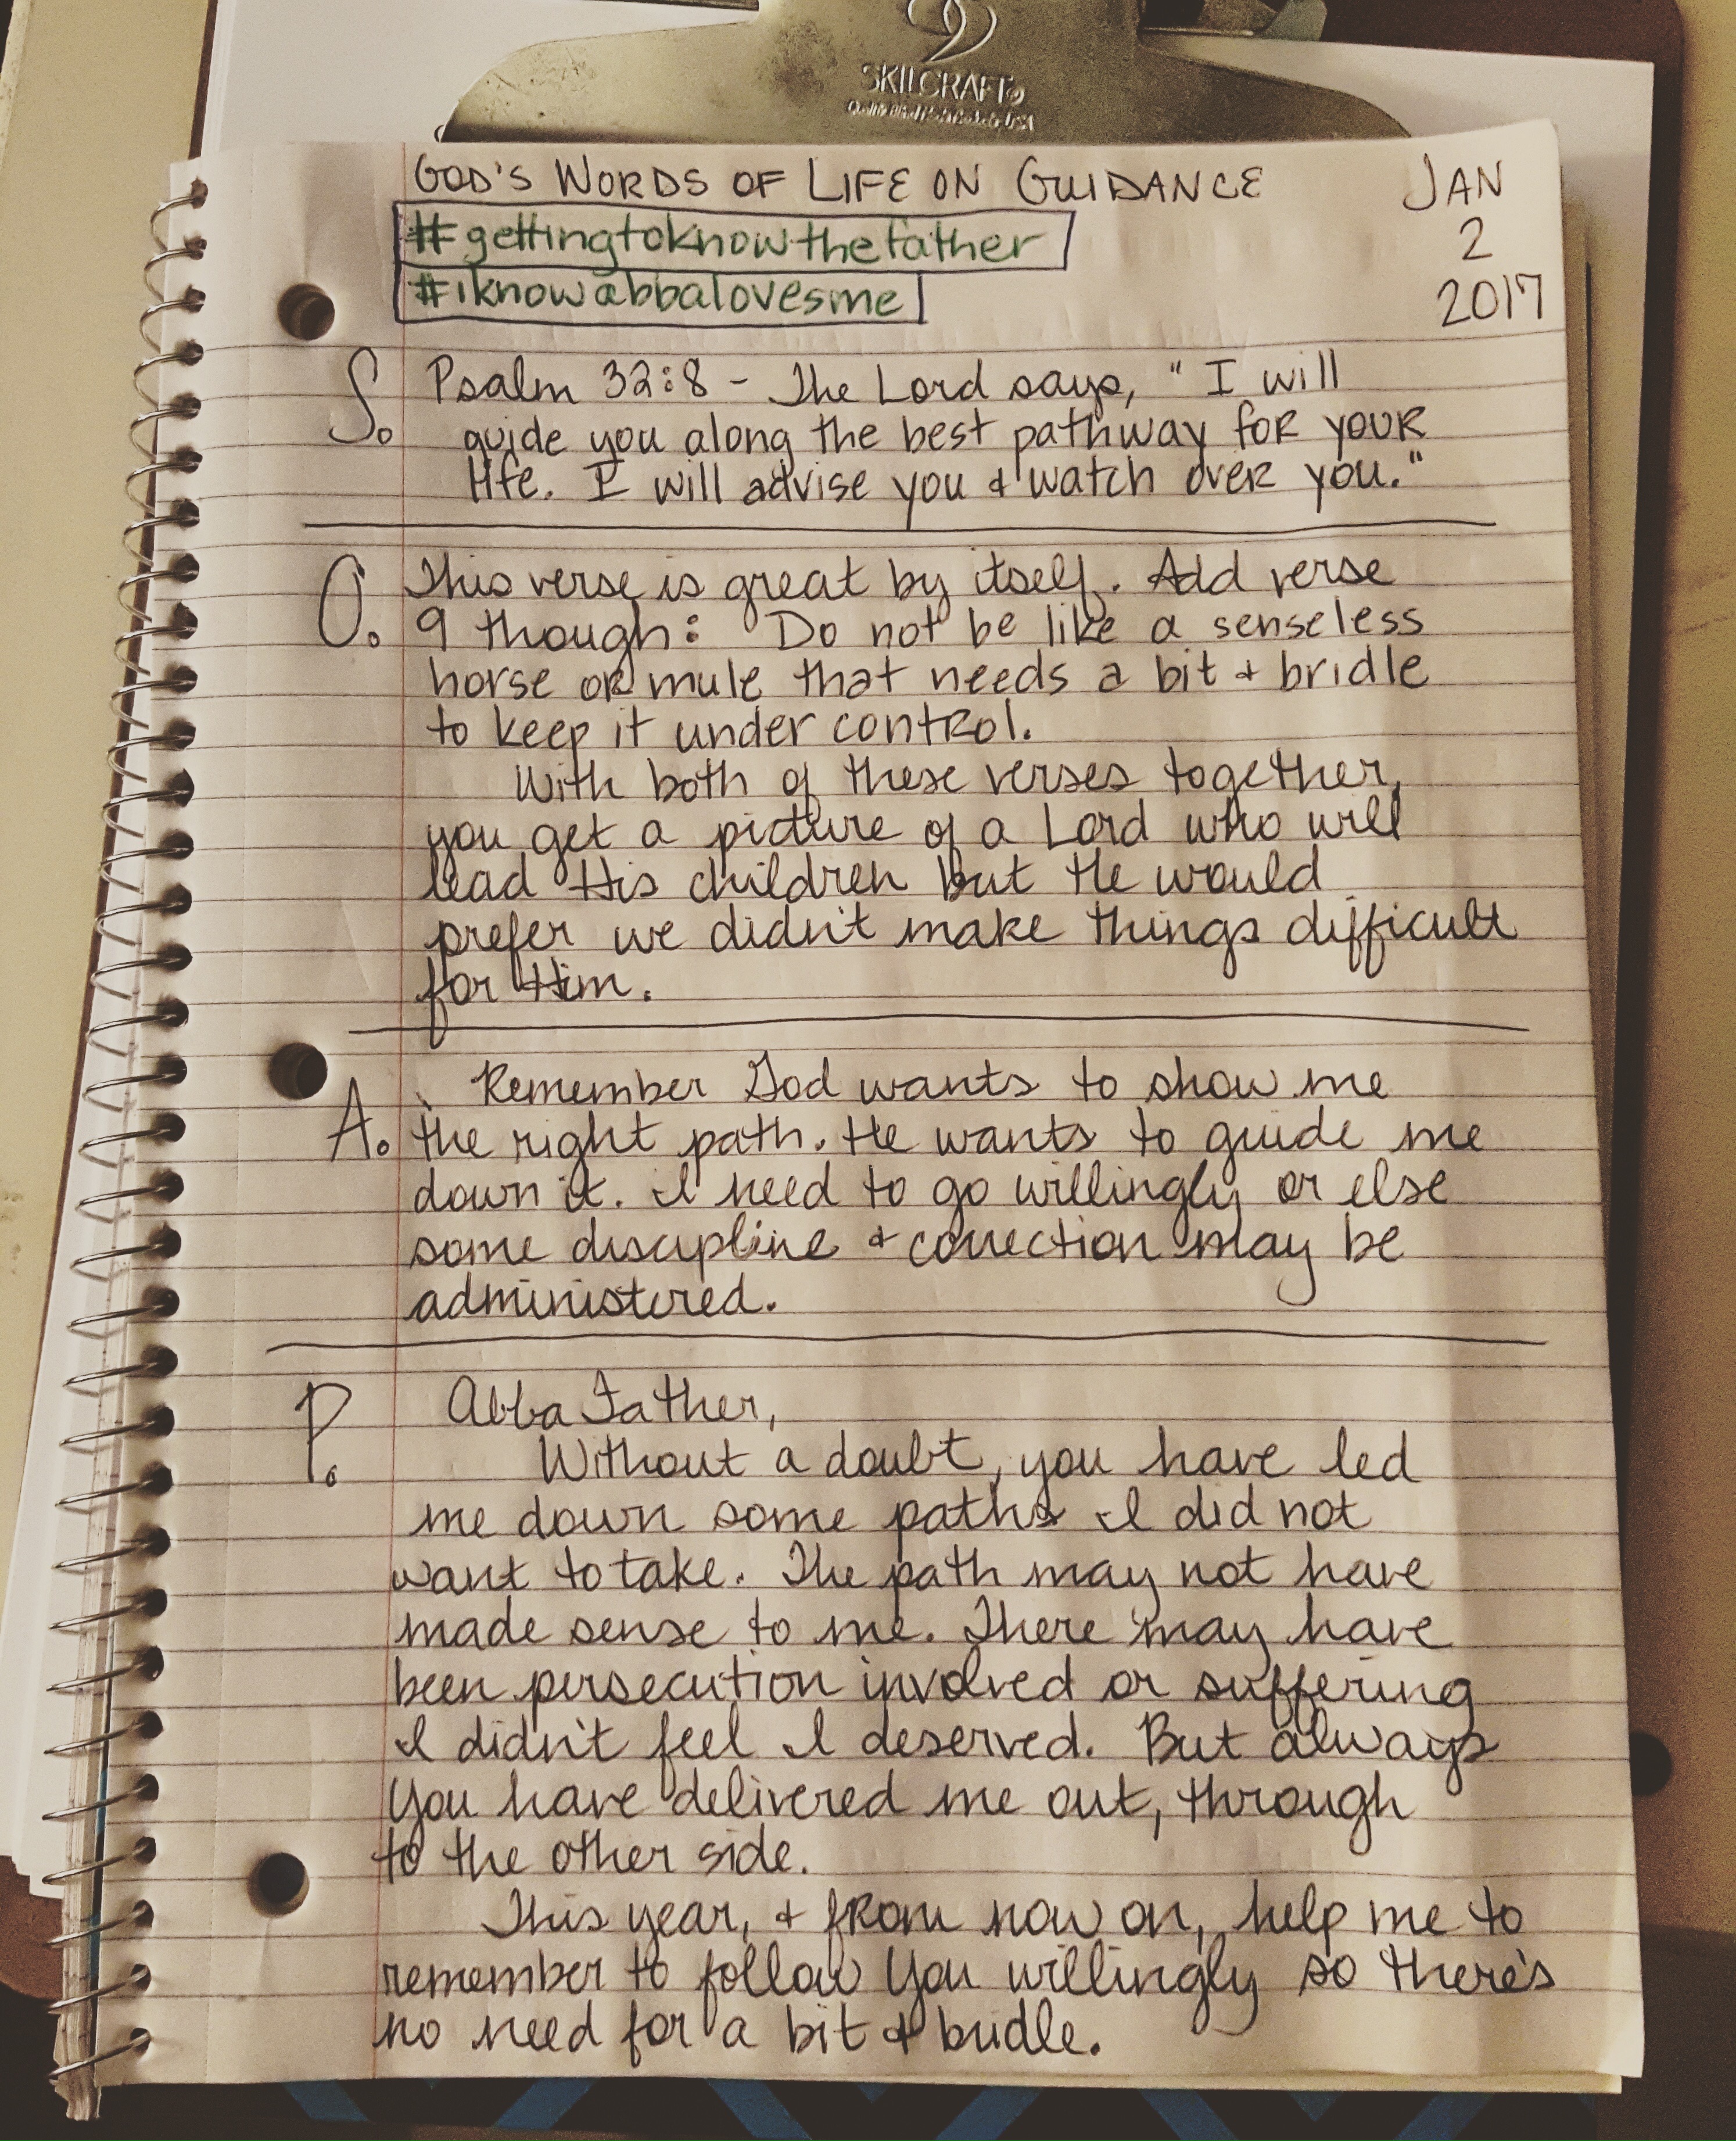 SKILCRAFT
GOD'S WORDS OF LIFE ON GUIDANCE
JAN
2
2017
#gettingtoknowthefather
#iknowabbalovesme
S. Psalm 32:8 - The Lord says, "I will
guide you along the best pathway for your
life. I will advise you & watch over you."
O. This verse is great by itself. Add verse
9 though: Do not be like a senseless
horse or mule that needs a bit & bridle
to keep it under control.
With both of these verses together,
you get a picture of a Lord who will
lead His children but He would
prefer we didn't make things difficult
for Him.
Remember God wants to show me
A. the right path. He wants to guide me
down it. I need to go willingly or else
some discipline & correction may be
administered.
P. Abba Father,
Without a doubt, you have led
me down some paths I did not
want to take. The path may not have
made sense to me. There may have
been persecution involved or suffering
I didn't feel I deserved. But always
You have delivered me out, through
to the other side.
This year, & from now on, help me to
remember to follow You willingly so there's
no need for a bit & bridle.